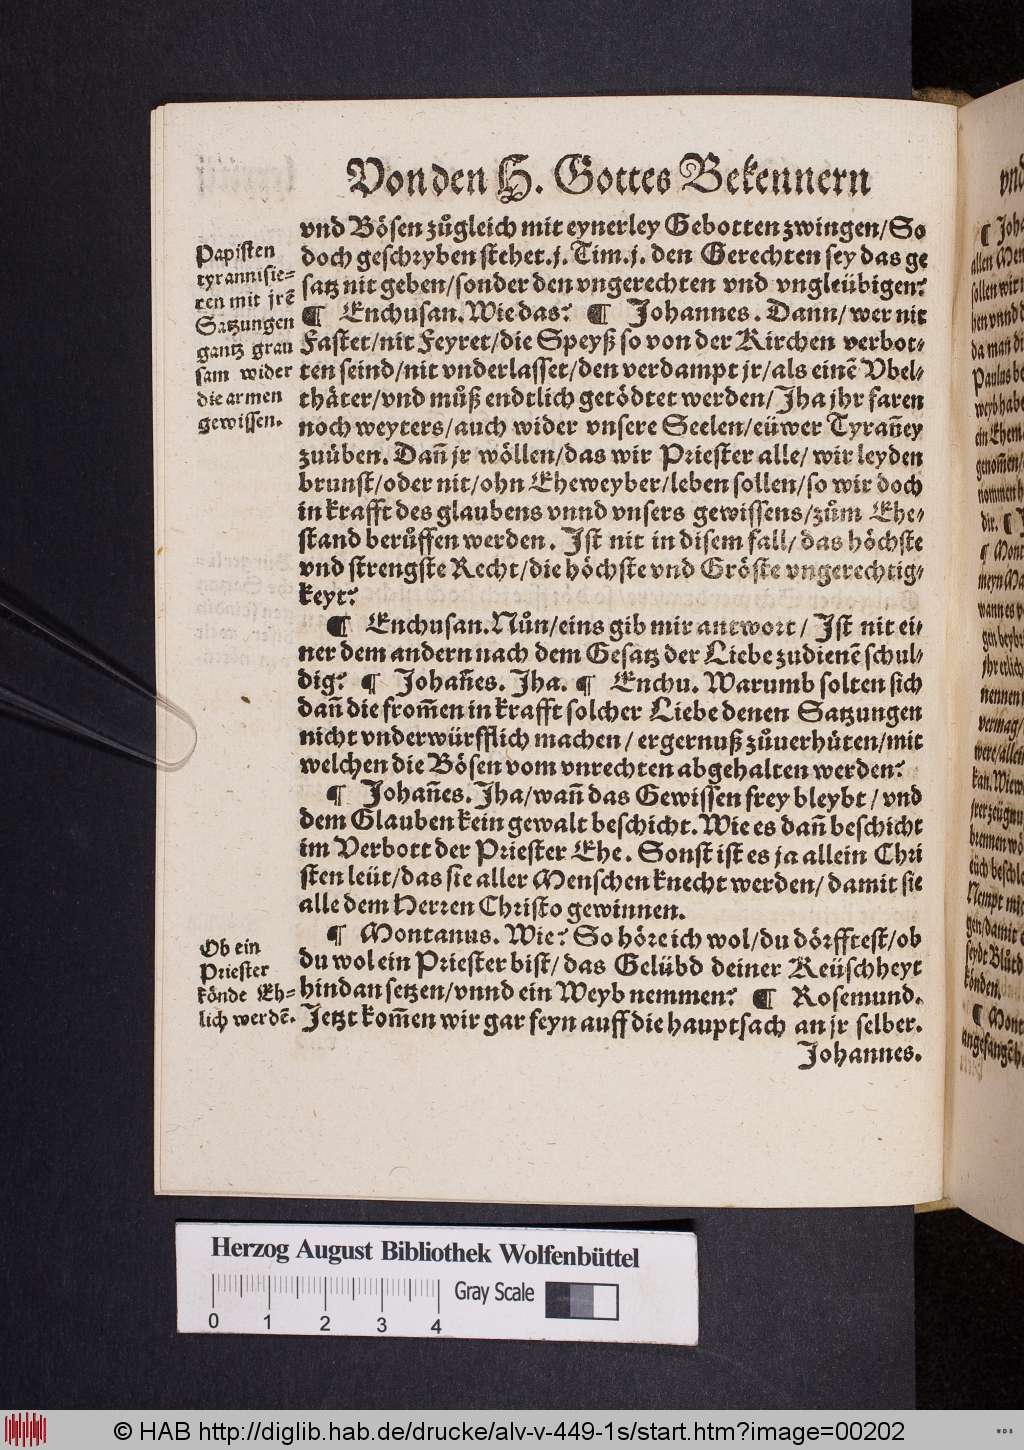 Von den H. Gottes Bekennern
vnd Bösen zůgleich mit eynerley Gebotten zwingen/ So
doch geschryben stehet. j. Tim. j. den Gerechten sey das ge
satz nit geben/ sonder den vngerechten vnd vngleübigen?
¶ Enchusan. Wie das? ¶ Johannes. Dann/ wer nit
Fastet/ nit Feyret/ die Speyß so von der Kirchen verbot⸗
ten seind/ nit vnderlasset/ den verdampt jr/ als einẽ Vbel⸗
thäter/ vnd můß endtlich getödtet werden/ Jha jhr faren
noch weyters/ auch wider vnsere Seelen/ eüwer Tyrañey
zuüben. Dañ jr wöllen/ das wir Priester alle/ wir leyden
brunst/ oder nit/ ohn Eheweyber/ leben sollen/ so wir doch
in krafft des glaubens vnnd vnsers gewissens/ zům Ehe⸗
stand berůffen werden. Ist nit in disem fall/ das höchste
vnd strengste Recht/ die höchste vnd Gröste vngerechtig⸗
keyt?
¶ Enchusan. Nůn/ eins gib mir antwort/ Ist nit ei⸗
ner dem andern nach dem Gesatz der Liebe zudienẽ schul⸗
dig? ¶ Johañes. Jha. ¶ Enchu. Warumb solten sich
dañ die from̃en in krafft solcher Liebe denen Satzungen
nicht vnderwürfflich machen/ ergernuß zůuerhüten/ mit
welchen die Bösen vom vnrechten abgehalten werden?
¶ Johañes. Jha/ wañ das Gewissen frey bleybt/ vnd
dem Glauben kein gewalt beschicht. Wie es dañ beschicht
im Verbott der Priester Ehe. Sonst ist es ja allein Chri
sten leüt/ das sie aller Menschen knecht werden/ damit sie
alle dem Herren Christo gewinnen.
¶ Montanus. Wie? So höre ich wol/ du dörfftest/ ob
du wol ein Priester bist/ das Gelübd deiner Keüschheyt
hindan setzen/ vnnd ein Weyb nemmen? ¶ Rosemund.
Jetzt kom̃en wir gar feyn auff die hauptsach an jr selber.
Johannes.
Papisten
tyrannisie⸗
ren mit jrẽ
Satzungen
gantz grau
sam wider
die armen
gewissen.
Ob ein
Priester
könde Eh⸗
lich werdẽ.
Herzog August Bibliothek Wolfenbüttel
Gray Scale
0 1 2 3 4
© HAB http://diglib.hab.de/drucke/alv-v-449-1s/start.htm?image=00202